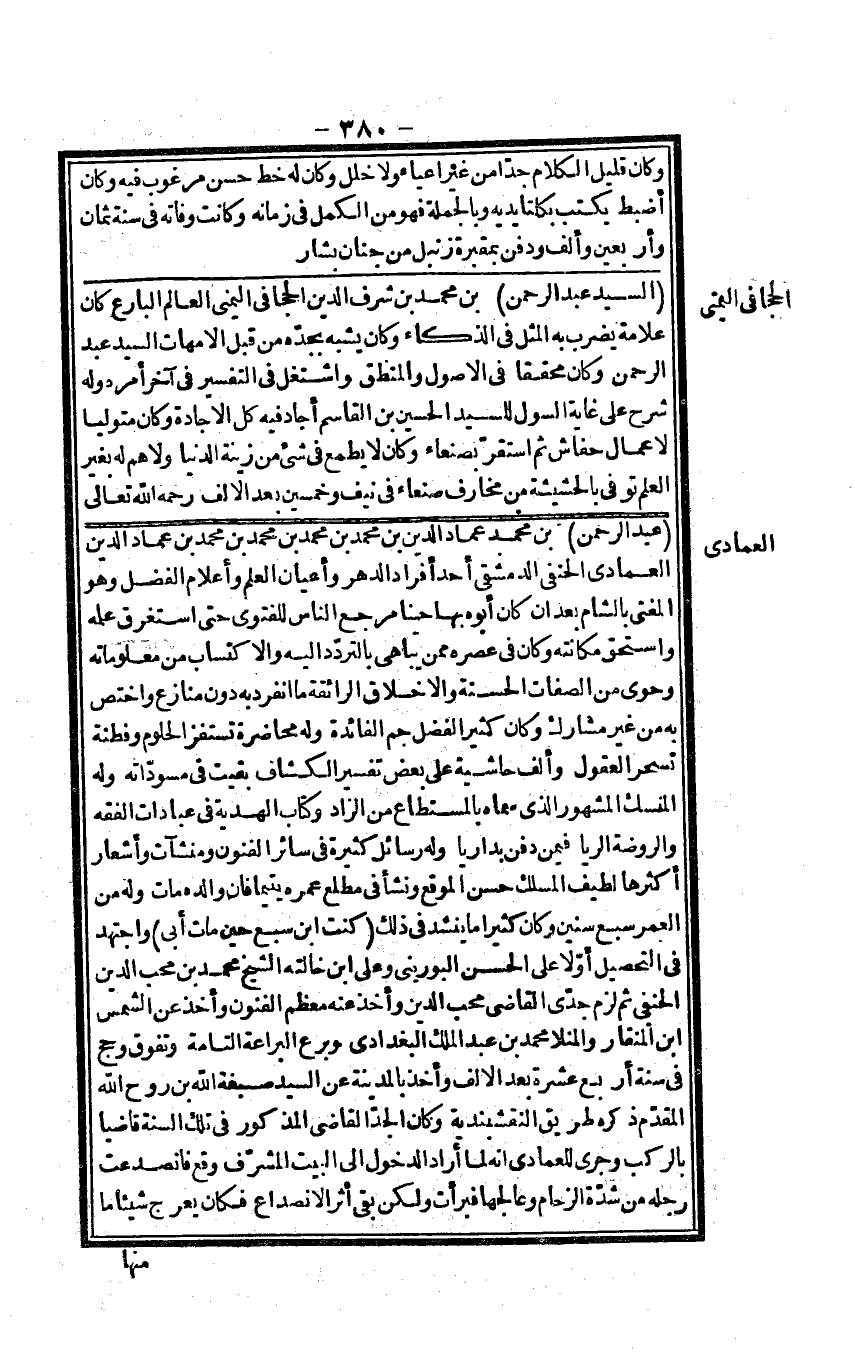 - ٣٨٠ -
وكان قليل الكلام جدّا من غير اعياء ولا خلل وكان له خط حسن مرغوب فيه وكان
أضبط يكتب بكلتا يديه وبالجملة فهو من الكمل فى زمانه وكانت وفاته فى سنة ثمان
وأربعين وألف ودفن بمقبرة زنبل من جنان بشار
الحجافى اليمنى
(السيد عبد الرحمن) بن محمد بن شرف الدين الحجافى اليمنى العالم البارع كان
علامة يضرب به المثل فى الذكاء وكان يشبه بجدّه من قبل الامهات السيد عبد
الرحمن وكان محققا فى الاصول والمنطق واشتغل فى التفسير فى آخر أمره وله
شرح على غاية السول للسيد الحسين بن القاسم أجاد فيه كل الاجادة وكان متوليا
لاعمال حفاش ثم استقرّ بصنعاء وكان لا يطمع فى شئ من زينة الدنيا ولا هم له بغير
العلم توفى بالحشيشة من مخارف صنعاء فى نيف وخمسين بعد الالف رحمه الله تعالى
العمادى
(عبد الرحمن) بن محمد عماد الدين بن محمد بن محمد بن محمد بن محمد بن عماد الدين
العمادى الحنفى الدمشقى أحد أفراد الدهر وأعيان العلم وأعلام الفضل وهو
المفتى بالشام بعد ان كان أبوه بها حينا مرجع الناس للفتوى حتى استغرق عمله
واستحق مكانته وكان فى عصره ممن يباهى بالتردّد اليه والاكتساب من معلوماته
وحوى من الصفات الحسنة والاخلاق الرائقة ما انفرد به دون منازع واختص
به من غير مشارك وكان كثير الفضل جم الفائدة وله محاضرة تستفز الحلوم وفطنة
تسحر العقول وألف حاشية على بعض تفسير الكشاف بقيت فى مسودّاته وله
المنسك المشهور الذى سماه بالمستطاع من الزاد وكتاب الهدية فى عبادات الفقه
والروضة الريا فيمن دفن بداريا وله رسائل كثيرة فى سائر الفنون ومنشآت وأشعار
أكثرها لطيف المسلك حسن الموقع ونشأ فى مطلع عمره يتيما فان والده مات وله من
العمر سبع سنين وكان كثيرا ما ينشد فى ذلك (كنت ابن سبع حين مات أبى) واجتهد
فى التحصيل أوّلا على الحسن البورينى وعلى ابن خالته الشيخ محمد بن محب الدين
الحنفى ثم لزم جدّى القاضى محب الدين وأخذ عنه معظم الفنون وأخذ عن الشمس
ابن المنقار والمنلا محمد بن عبد الملك البغدادى وبرع البراعة التامة وتفوق وحج
فى سنة أربع عشرة بعد الالف وأخذ بالمدينة عن السيد صبغة الله بن روح الله
المقدّم ذكره طريق النقشبندية وكان الجدّ القاضى المذكور فى تلك السنة قاضيا
بالركب وجرى للعمادى انه لما أراد الدخول الى البيت المشرّف وقع فانصدعت
رجله من شدّة الزحام وعالجها فبرأت ولكن بقى أثر الانصداع فكان يعرج شيئا ما
منها